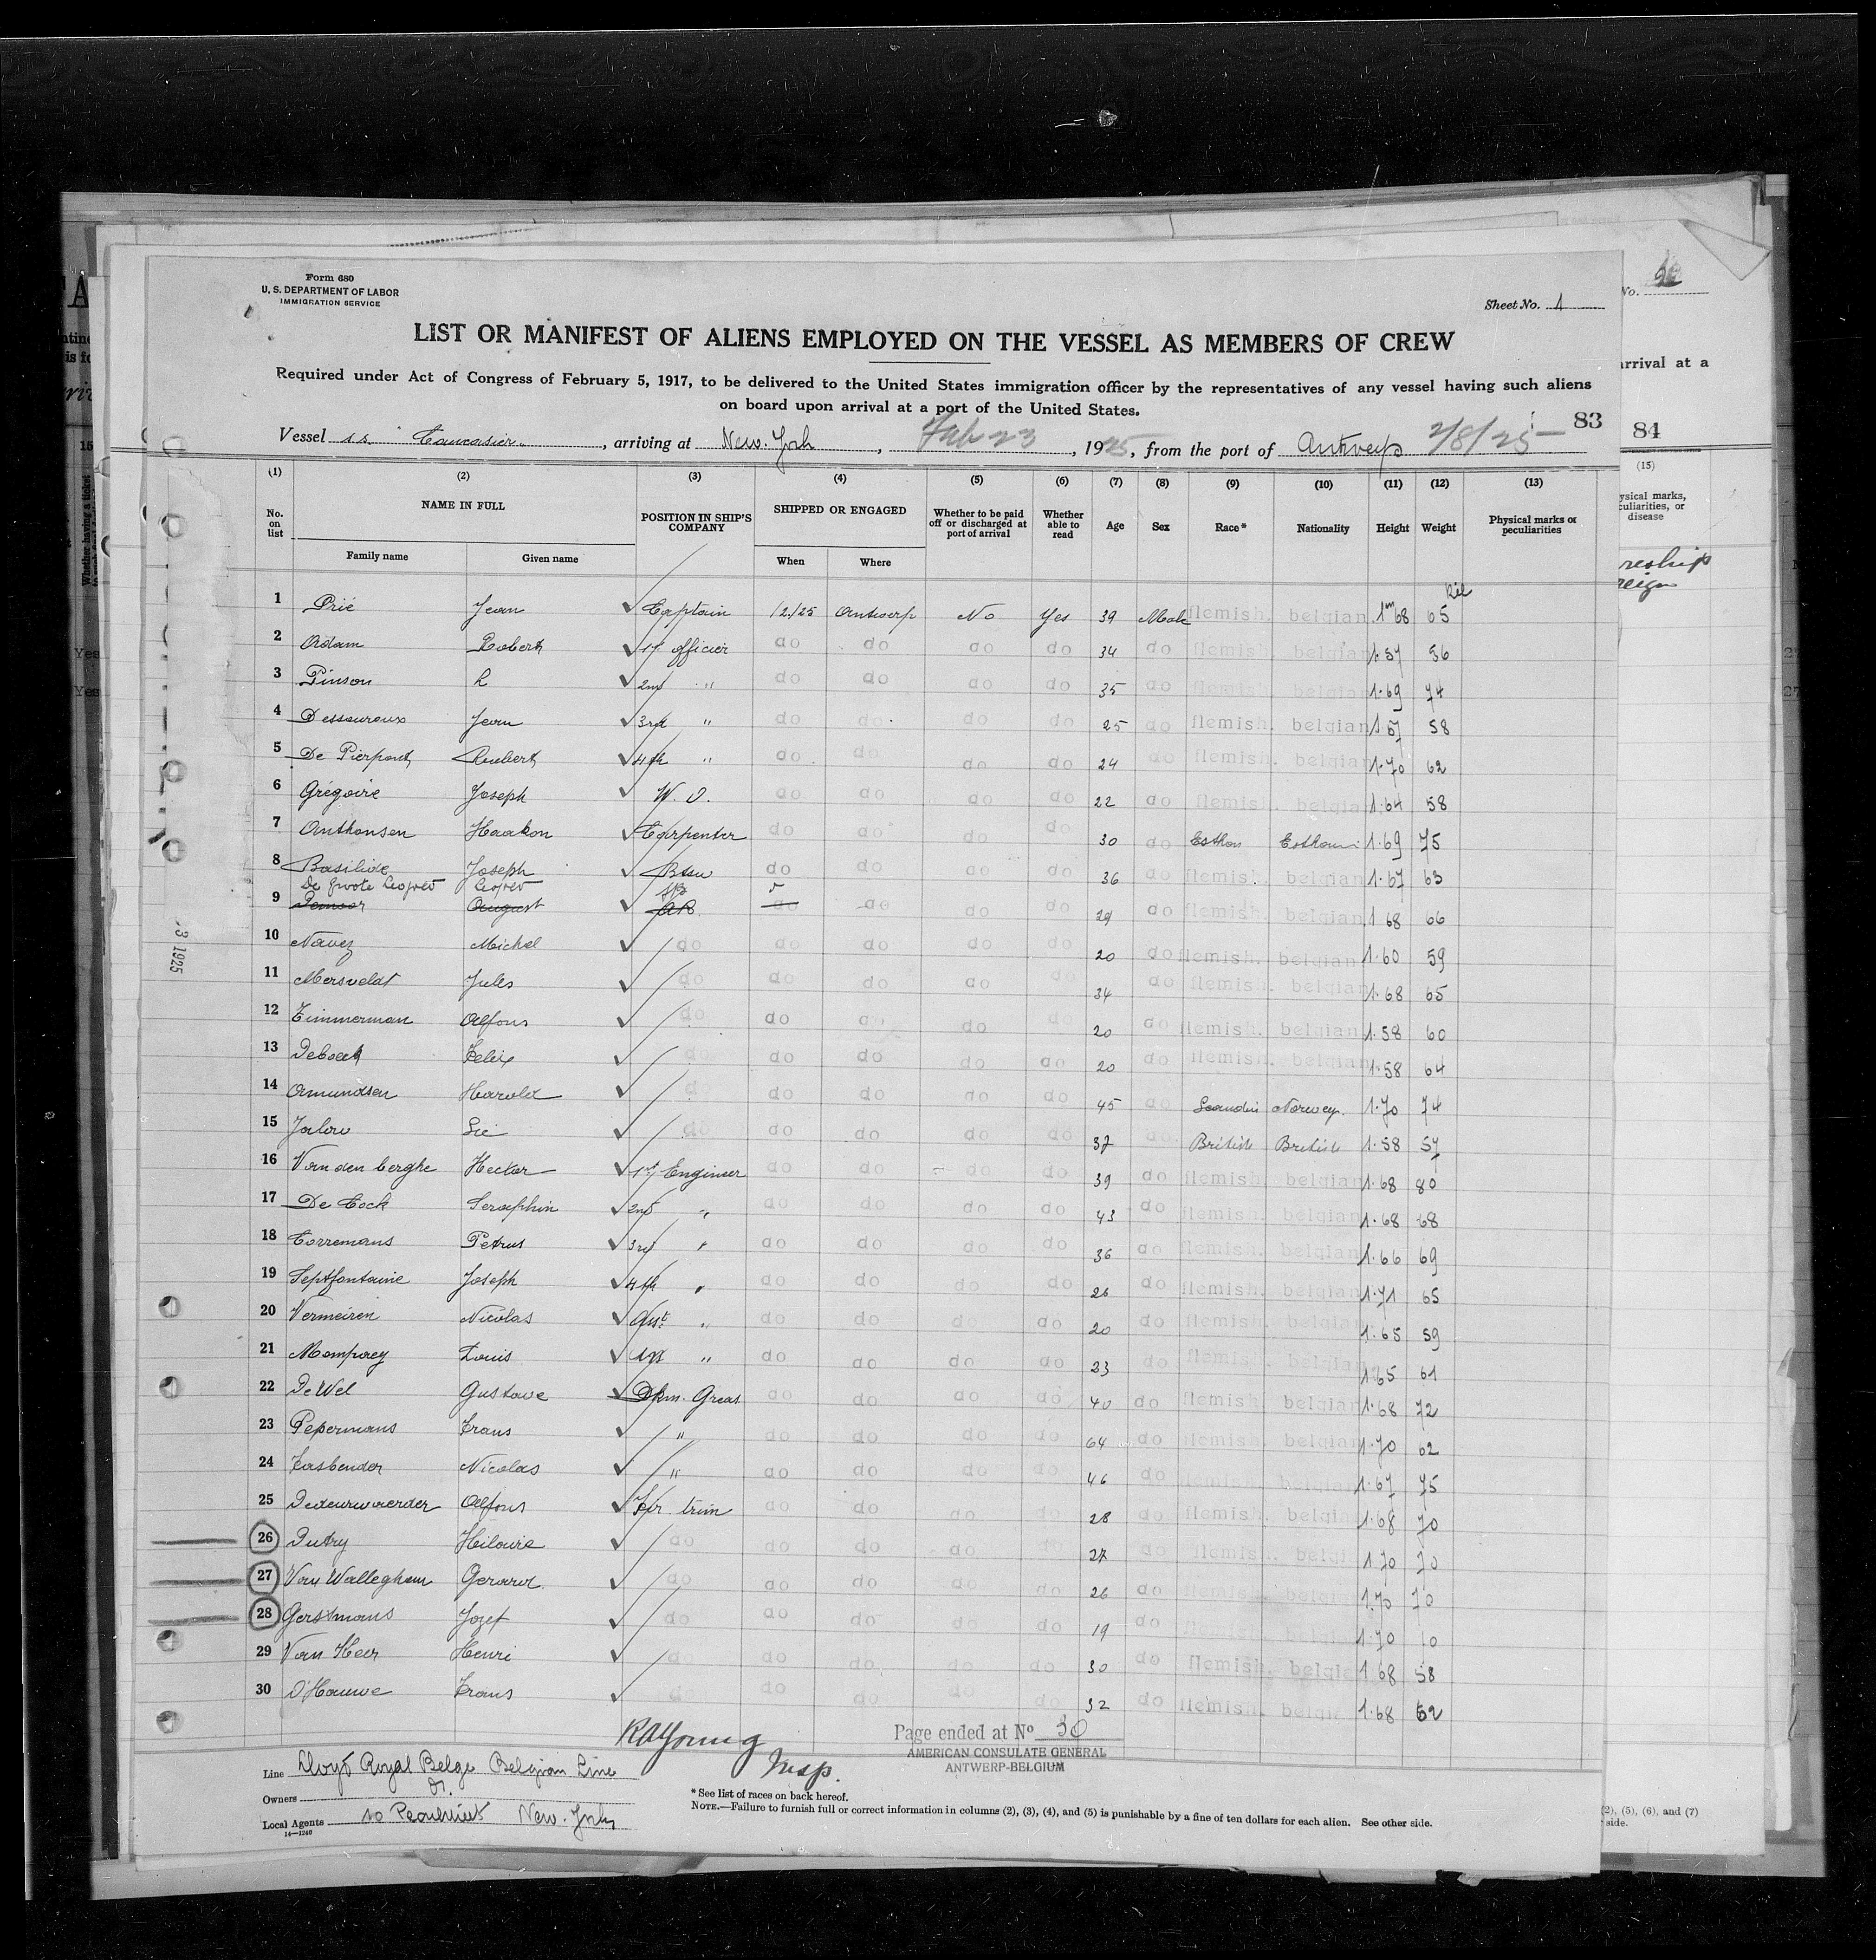 Form 680
U. S. DEPARTMENT OF LABOR
IMMIGRATION SERVICE
Sheet No. 1
LIST OR MANIFEST OF ALIENS EMPLOYED ON THE VESSEL AS MEMBERS OF CREW
Required under Act of Congress of February 5, 1917, to be delivered to the United States immigration officer by the representatives of any vessel having such aliens
on board upon arrival at a port of the United States.
83
84
Vessel s.s. Caucasier, arriving at New-York, Feb 23, 1925, from the port of Antwerp 2/8/25
(1) (2) (3) (4) (5) (6) (7) (8) (9) (10) (11) (12) (13)
No. on list NAME IN FULL POSITION IN SHIP'S COMPANY SHIPPED OR ENGAGED Whether to be paid off or discharged at port of arrival Whether able to read Age Sex Race* Nationality Height Weight Physical marks or peculiarities
Family name Given name When Where
1 Prié Jean Captain 1/2/25 Antwerp No Yes 39 Male flemish. belgian 1m68 65
2 Adam Robert 1st officier do do do do 34 do flemish belgian 1.57 56
3 Pinson R 2nd " do do do do 35 do flemish belgian 1.69 74
4 Dessoureux Jean 3rd " do do do do 25 do flemish. belgian 1.57 58
5 De Pierpont Roubert 4th " do do do do 24 do flemish. belgian 1.70 62
6 Grégoire Joseph W. O. do do do do 22 do flemish belgian 1.64 58
7 Anthonsen Haakon Carpenter do do do do 30 do Esthon Esthoni 1.69 75
8 Basilide Joseph Bsw do do do do 36 do flemish. belgian 1.67 63
De Groote Leopold Leopold
9 August AB do do do do 29 do flemish belgian 1.68 66
10 Navez Michel do do do do do 20 do flemish. belgian 1.60 59
11 Mersveldt Jules do do do do do 34 do flemish. belgian 1.68 65
12 Zimmerman Alfons do do do do do 20 do flemish. belgian 1.58 60
13 Deboeck Felix do do do do do 20 do flemish. belgian 1.58 64
14 Amundsen Harold do do do do do 45 do Scandin Norwey. 1.70 74
15 Jalow Lie do do do do do 37 do British British 1.58 57
16 Van den berghe Hector 1st Engineer do do do do 39 do flemish belgian 1.68 80
17 De Cock Seraphin 2nd " do do do do 43 do flemish. belgian 1.68 68
18 Corremans Petrus 3rd " do do do do 36 do flemish. belgian 1.66 69
19 Septfontaine Joseph 4th " do do do do 26 do flemish. belgian 1.71 65
20 Vermeiren Nicolas Asst " do do do do 20 do flemish. belgian 1.65 59
21 Mompaey Louis " do do do do 23 do flemish. belgian 1.65 61
22 De Wel Gustave Dkm. Greas do do do do 40 do flemish. belgian 1.68 72
23 Pepermans Frans " do do do do 64 do flemish. belgian 1.70 62
24 Fasbender Nicolas " do do do do 46 do flemish. belgian 1.67 75
25 Dedeurwaerder Alfons Fir trim do do do do 28 do flemish. belgian 1.68 70
26 Dutry Hiloire do do do do do 27 do flemish. belgi 1.70 70
27 Van Walleghem Gerard do do do do do 26 do flemish. belgi 1.70 70
28 Gerstmans Jozef do do do do do 19 do flemish belgi 1.70
29 Van Heer Henri do do do do do 30 do flemish. belgia 1.68 58
30 D'Hauwe Frans do do do do do 32 do flemish. belgia 1.68 62
3 1925
RA Young
Insp.
Page ended at No 30
AMERICAN CONSULATE GENERAL
ANTWERP-BELGIUM
Line Lloyd Royal Belge Belgian Line
Owners do.
Local Agents New-York
14—1240
*See list of races on back hereof.
NOTE.—Failure to furnish full or correct information in columns (2), (3), (4), and (5) is punishable by a fine of ten dollars for each alien. See other side.